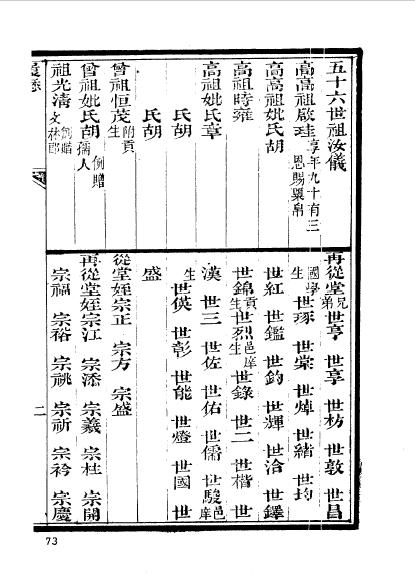 五十六世祖汝儀
高高祖啟珪 享年九十有三 恩賜粟帛
高高祖妣氏胡
高祖時雍
高祖妣氏章
氏胡
氏胡
曾祖恒茂 附貢生
曾祖妣氏胡 例贈孺人
祖光清 例贈文林郎
再從堂兄弟世亨 世享 世枋 世敦 世昌
國學生世琢 世棠 世焯 世緒 世均
世紅 世鑑 世鈞 世輝 世洽 世鐸
世錦 貢生世烈 邑庠生世錄 世二 世楷 世
漢 世三 世佐 世佑 世儒 世駿 邑庠
生世偀 世彰 世能 世燈 世國 世
盛
從堂姪宗正 宗方 宗盛
再從堂姪宗江 宗添 宗羲 宗柱 宗開
宗福 宗裕 宗祧 宗祈 宗衿 宗慶
二
73